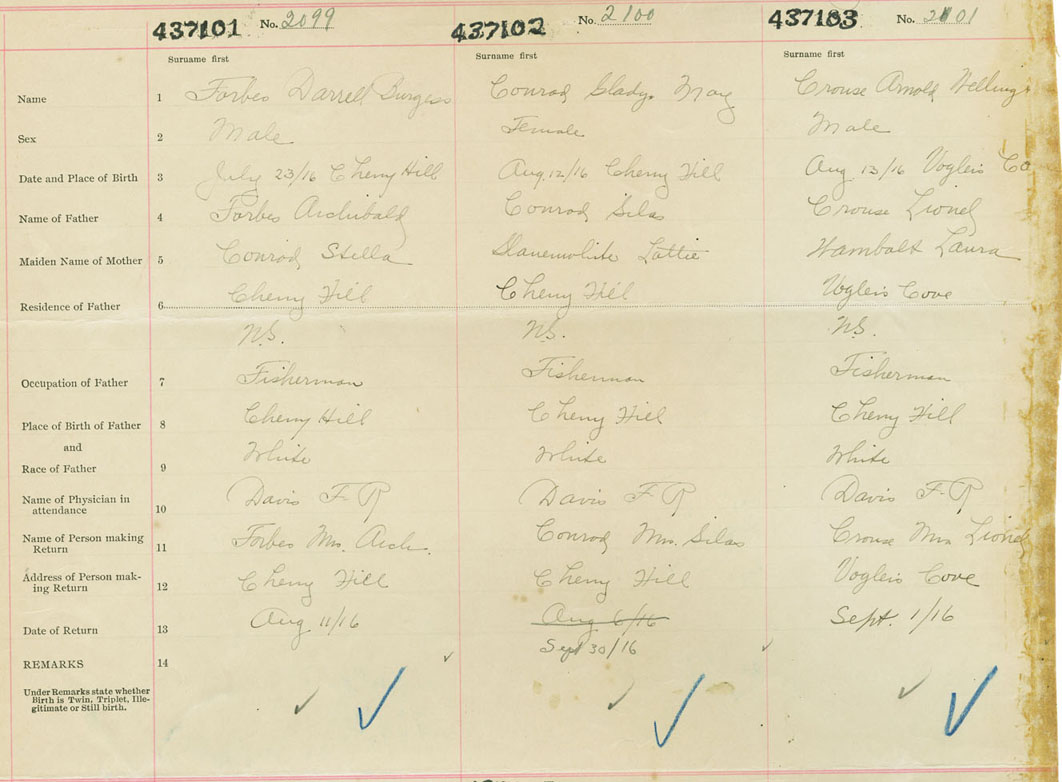 437101 No. 2099 437102 No. 2100 437103 No. 2101
Surname first Surname first Surname first
Name 1 Forbes Darrell Burgess Conrad Gladys May Crouse Arnold Welling
Sex 2 Male Female Male
Date and Place of Birth 3 July 23/16 Cherry Hill Aug 12/16 Cherry Hill Aug 13/16 Voglers Co
Name of Father 4 Forbes Archibald Conrad Silas Crouse Lionel
Maiden Name of Mother 5 Conrad Stella Lottie Wambolt Laura
Residence of Father 6 Cherry Hill Cherry Hill Voglers Cove
N.S. N.S. N.S.
Occupation of Father 7 Fisherman Fisherman Fisherman
Place of Birth of Father 8 Cherry Hill Cherry Hill Cherry Hill
and
Race of Father 9 White White White
Name of Physician in attendance 10 Davis F R Davis F R Davis F R
Name of Person making Return 11 Forbes Mrs. Arch. Conrad Mrs. Silas Crouse Mrs Lionel
Address of Person mak-ing Return 12 Cherry Hill Cherry Hill Voglers Cove
Date of Return 13 Aug 11/16 Aug 6/16 Sept. 1/16
Sept 30/16
REMARKS 14
Under Remarks state whether
Birth is Twin, Triplet, Ille-
gitimate or Still birth.